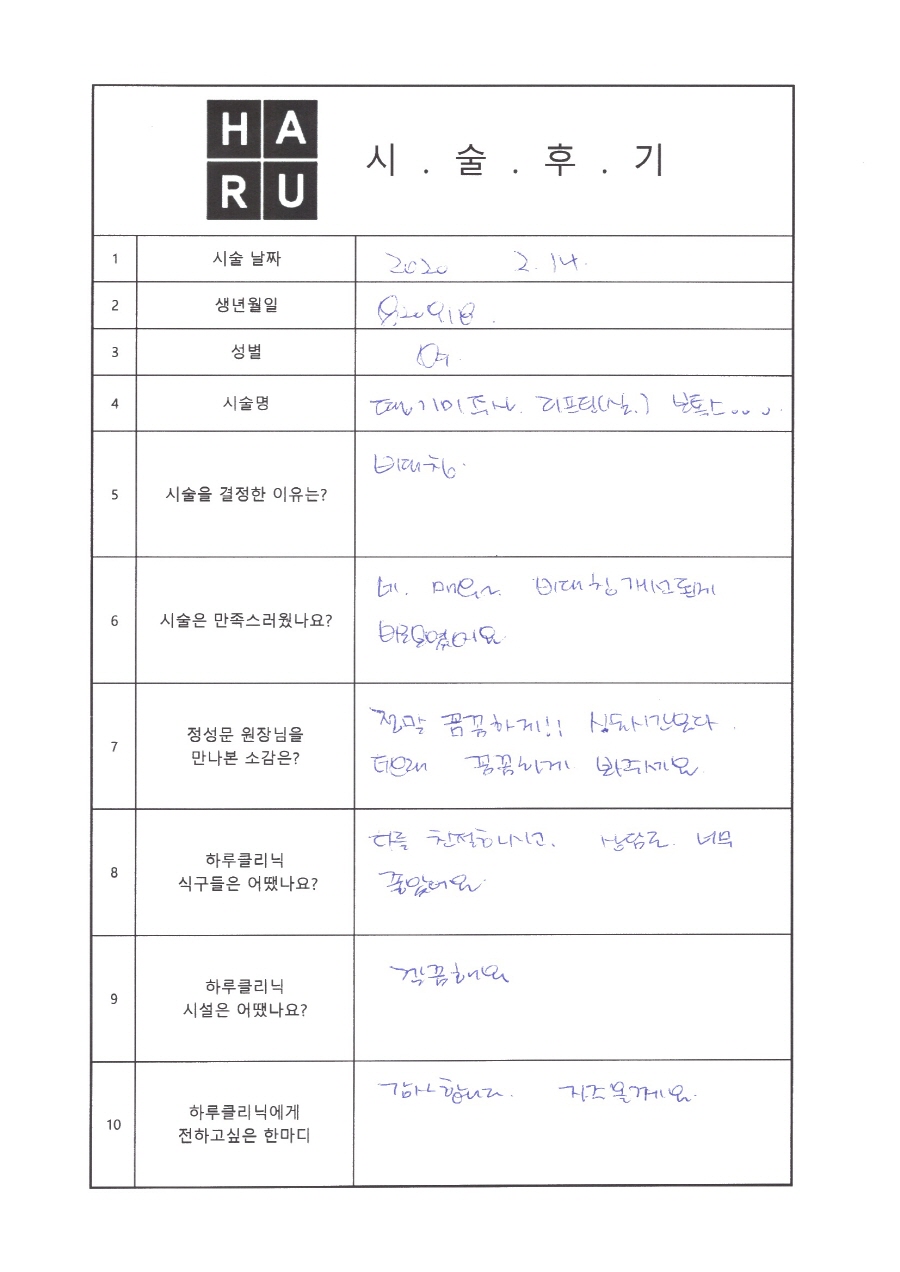 HA
RU
시 . 술 . 후 . 기
1 시술 날짜 2020 2. 14.
2 생년월일
3 성별 여.
4 시술명 리프팅(실.) 보톡스....
5 시술을 결정한 이유는? 비대칭.
6 시술은 만족스러웠나요? 네. 매우. 비대칭개선되게
해주셨어요
7 정성문 원장님을
만나본 소감은? 정말 꼼꼼하게!! 상담시간보다.
더오래 꼼꼼하게 봐주세요
8 하루클리닉
식구들은 어땠나요? 다들 친절하시고. 상담도 너무
좋았어요
9 하루클리닉
시설은 어땠나요? 깔끔해요
10 하루클리닉에게
전하고싶은 한마디 감사합니다. 자주올게요.